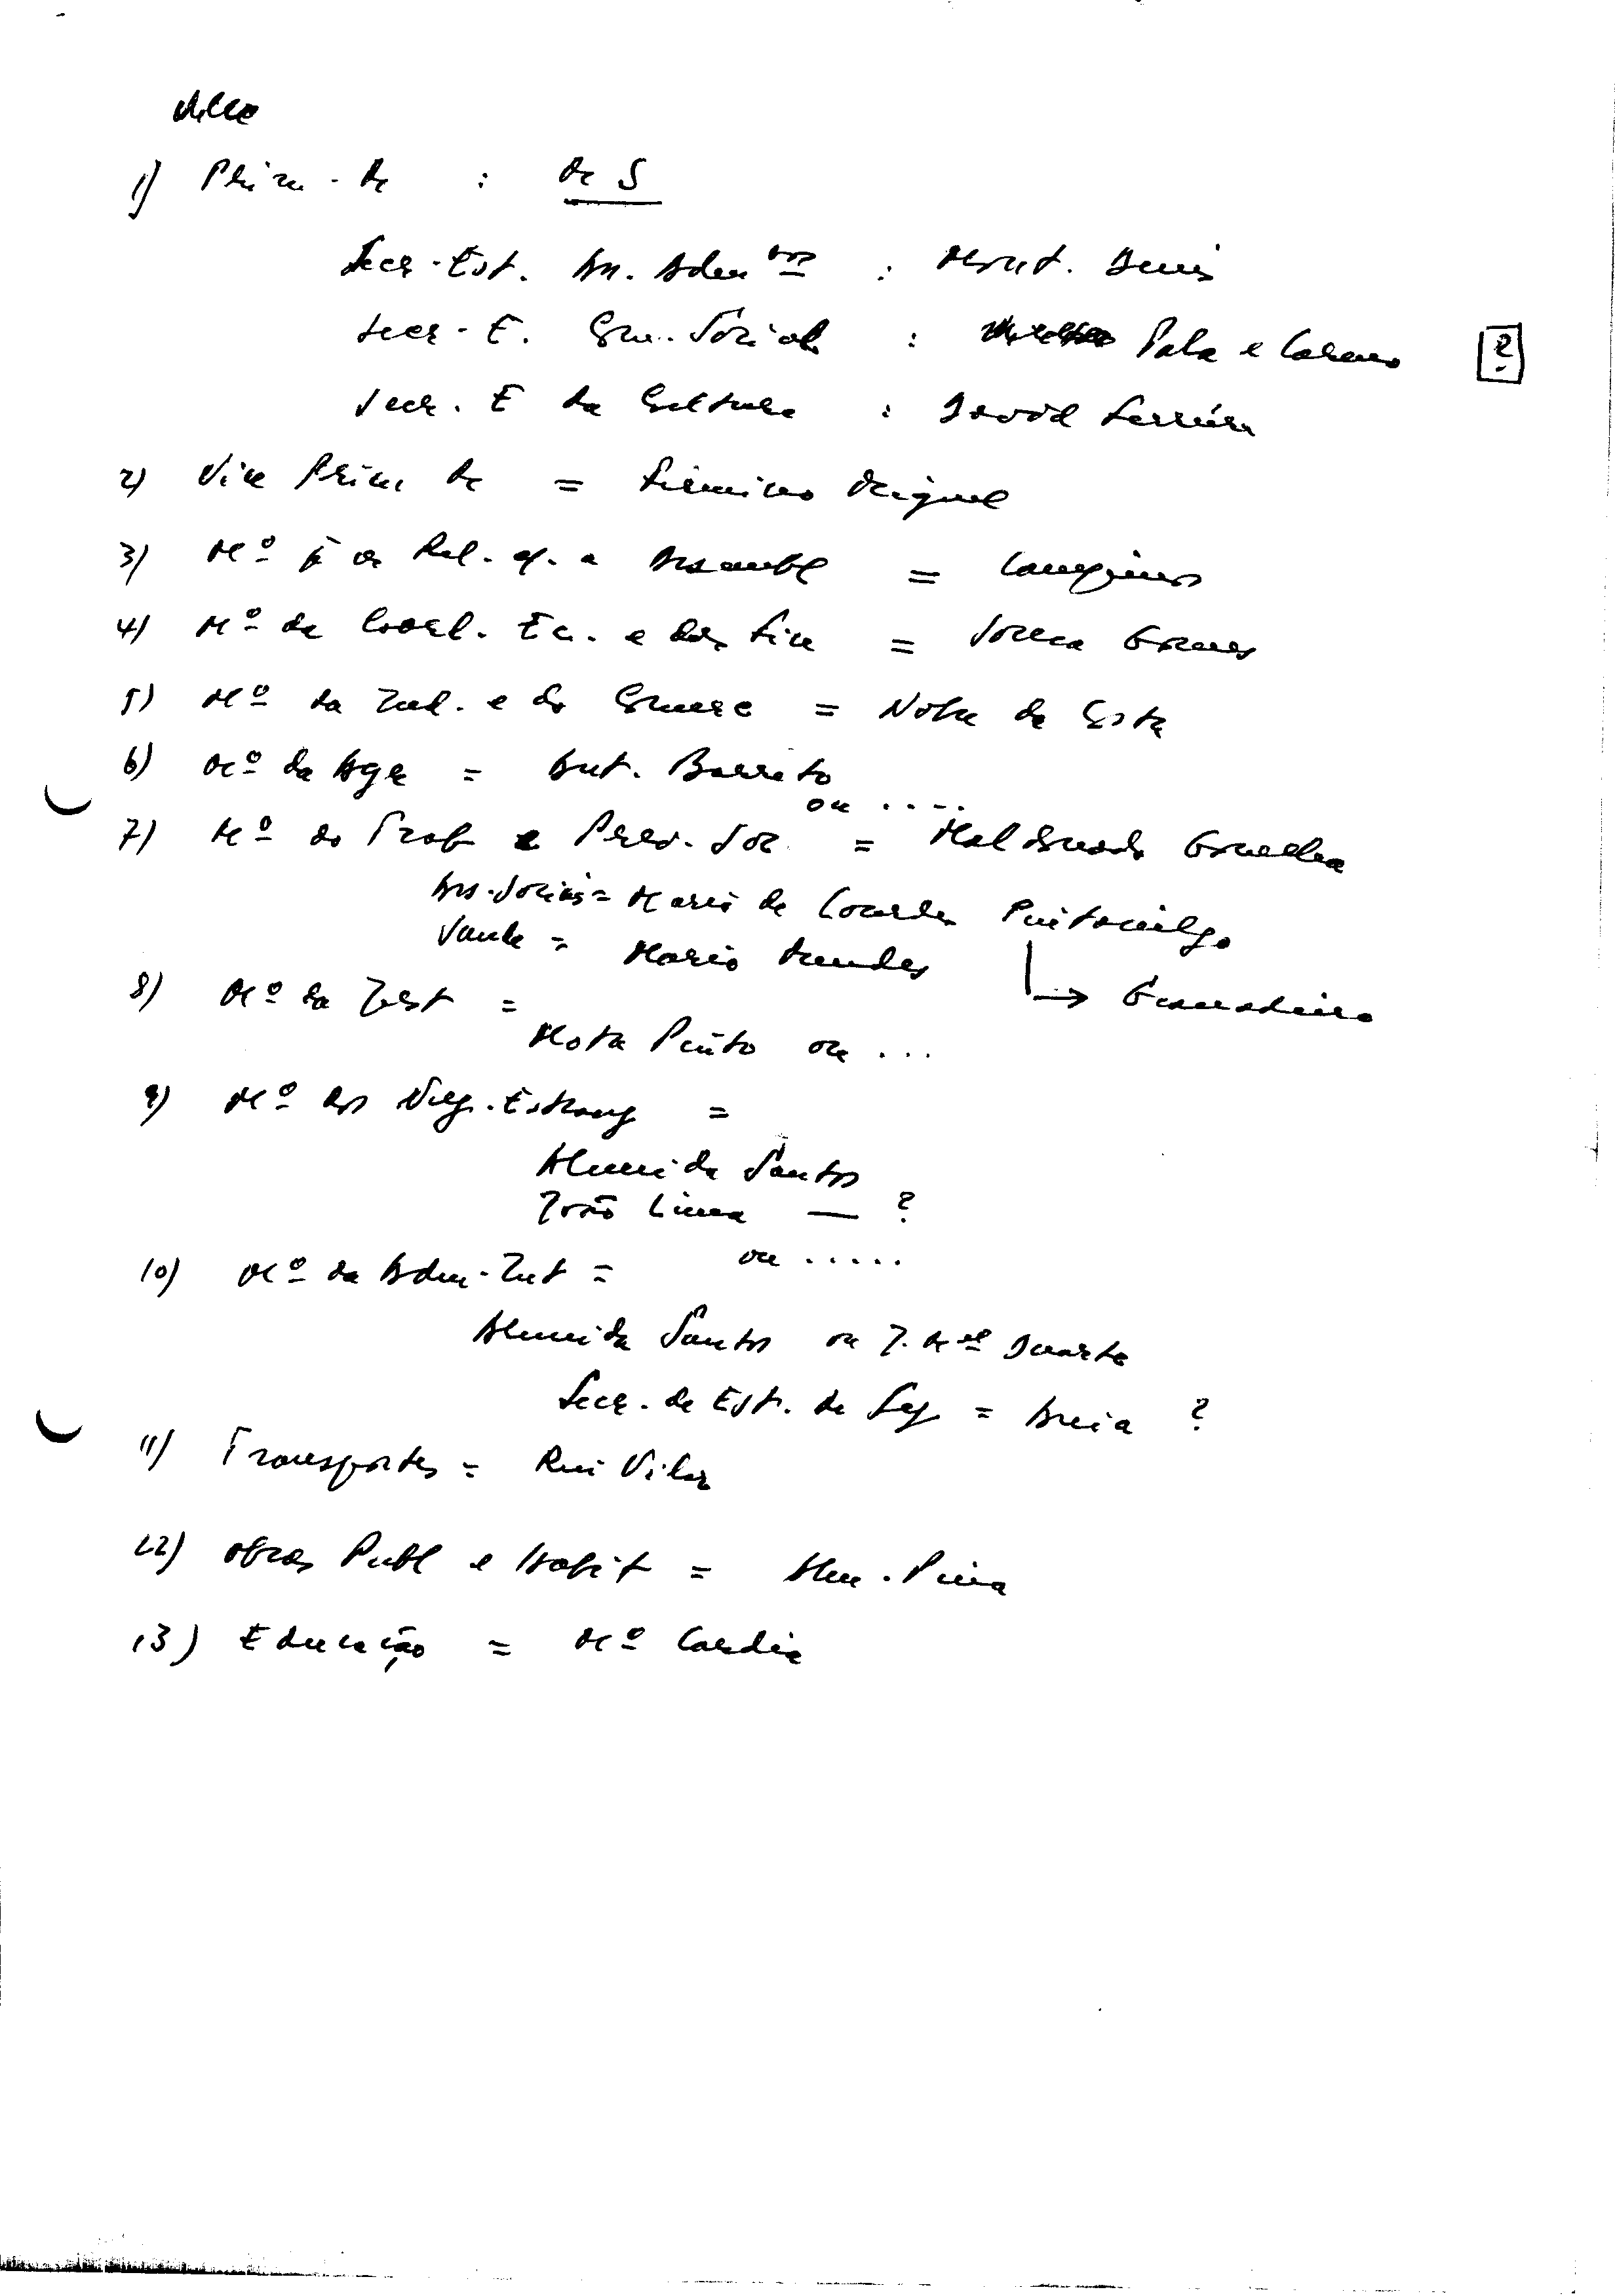 1) Prim. M : M S
Secr. Est. Ass. Adm vos : Mont. Denis
Secr. E. Com. Social : Pala e Carmo [?]
Secr. E da Cultura : David Ferreira
2) Vice Prim M = Firmino Miguel
3) Mº p as Rel. c. a Assembl = Campinos
4) Mº da Coord. Ec. e das Fin = Sousa Gomes
5) Mº da Ind. e do Comerc = Nobre da Costa
6) Mº da Agr = Ant. Barreto
ou ....
7) Mº do Trab e Prev. Soc = Maldonado Gonelha
Ass. Sociais = Maria de Lourdes Pintasilgo
Saude = Mario Mendes
8) Mº da Just =
Mota Pinto ou ...
9) Mº dos Neg. Estrang =
Almeida Santos
João Lima — ?
ou .....
10) Mº da Adm. Int =
Almeida Santos ou J. Mel Duarte
Secr. de Est. de Seg = ?
11) Transportes = Rui Vilar
12) Obras Publ e Habit = Alm. Pina
13) Educação = Mº Cardia